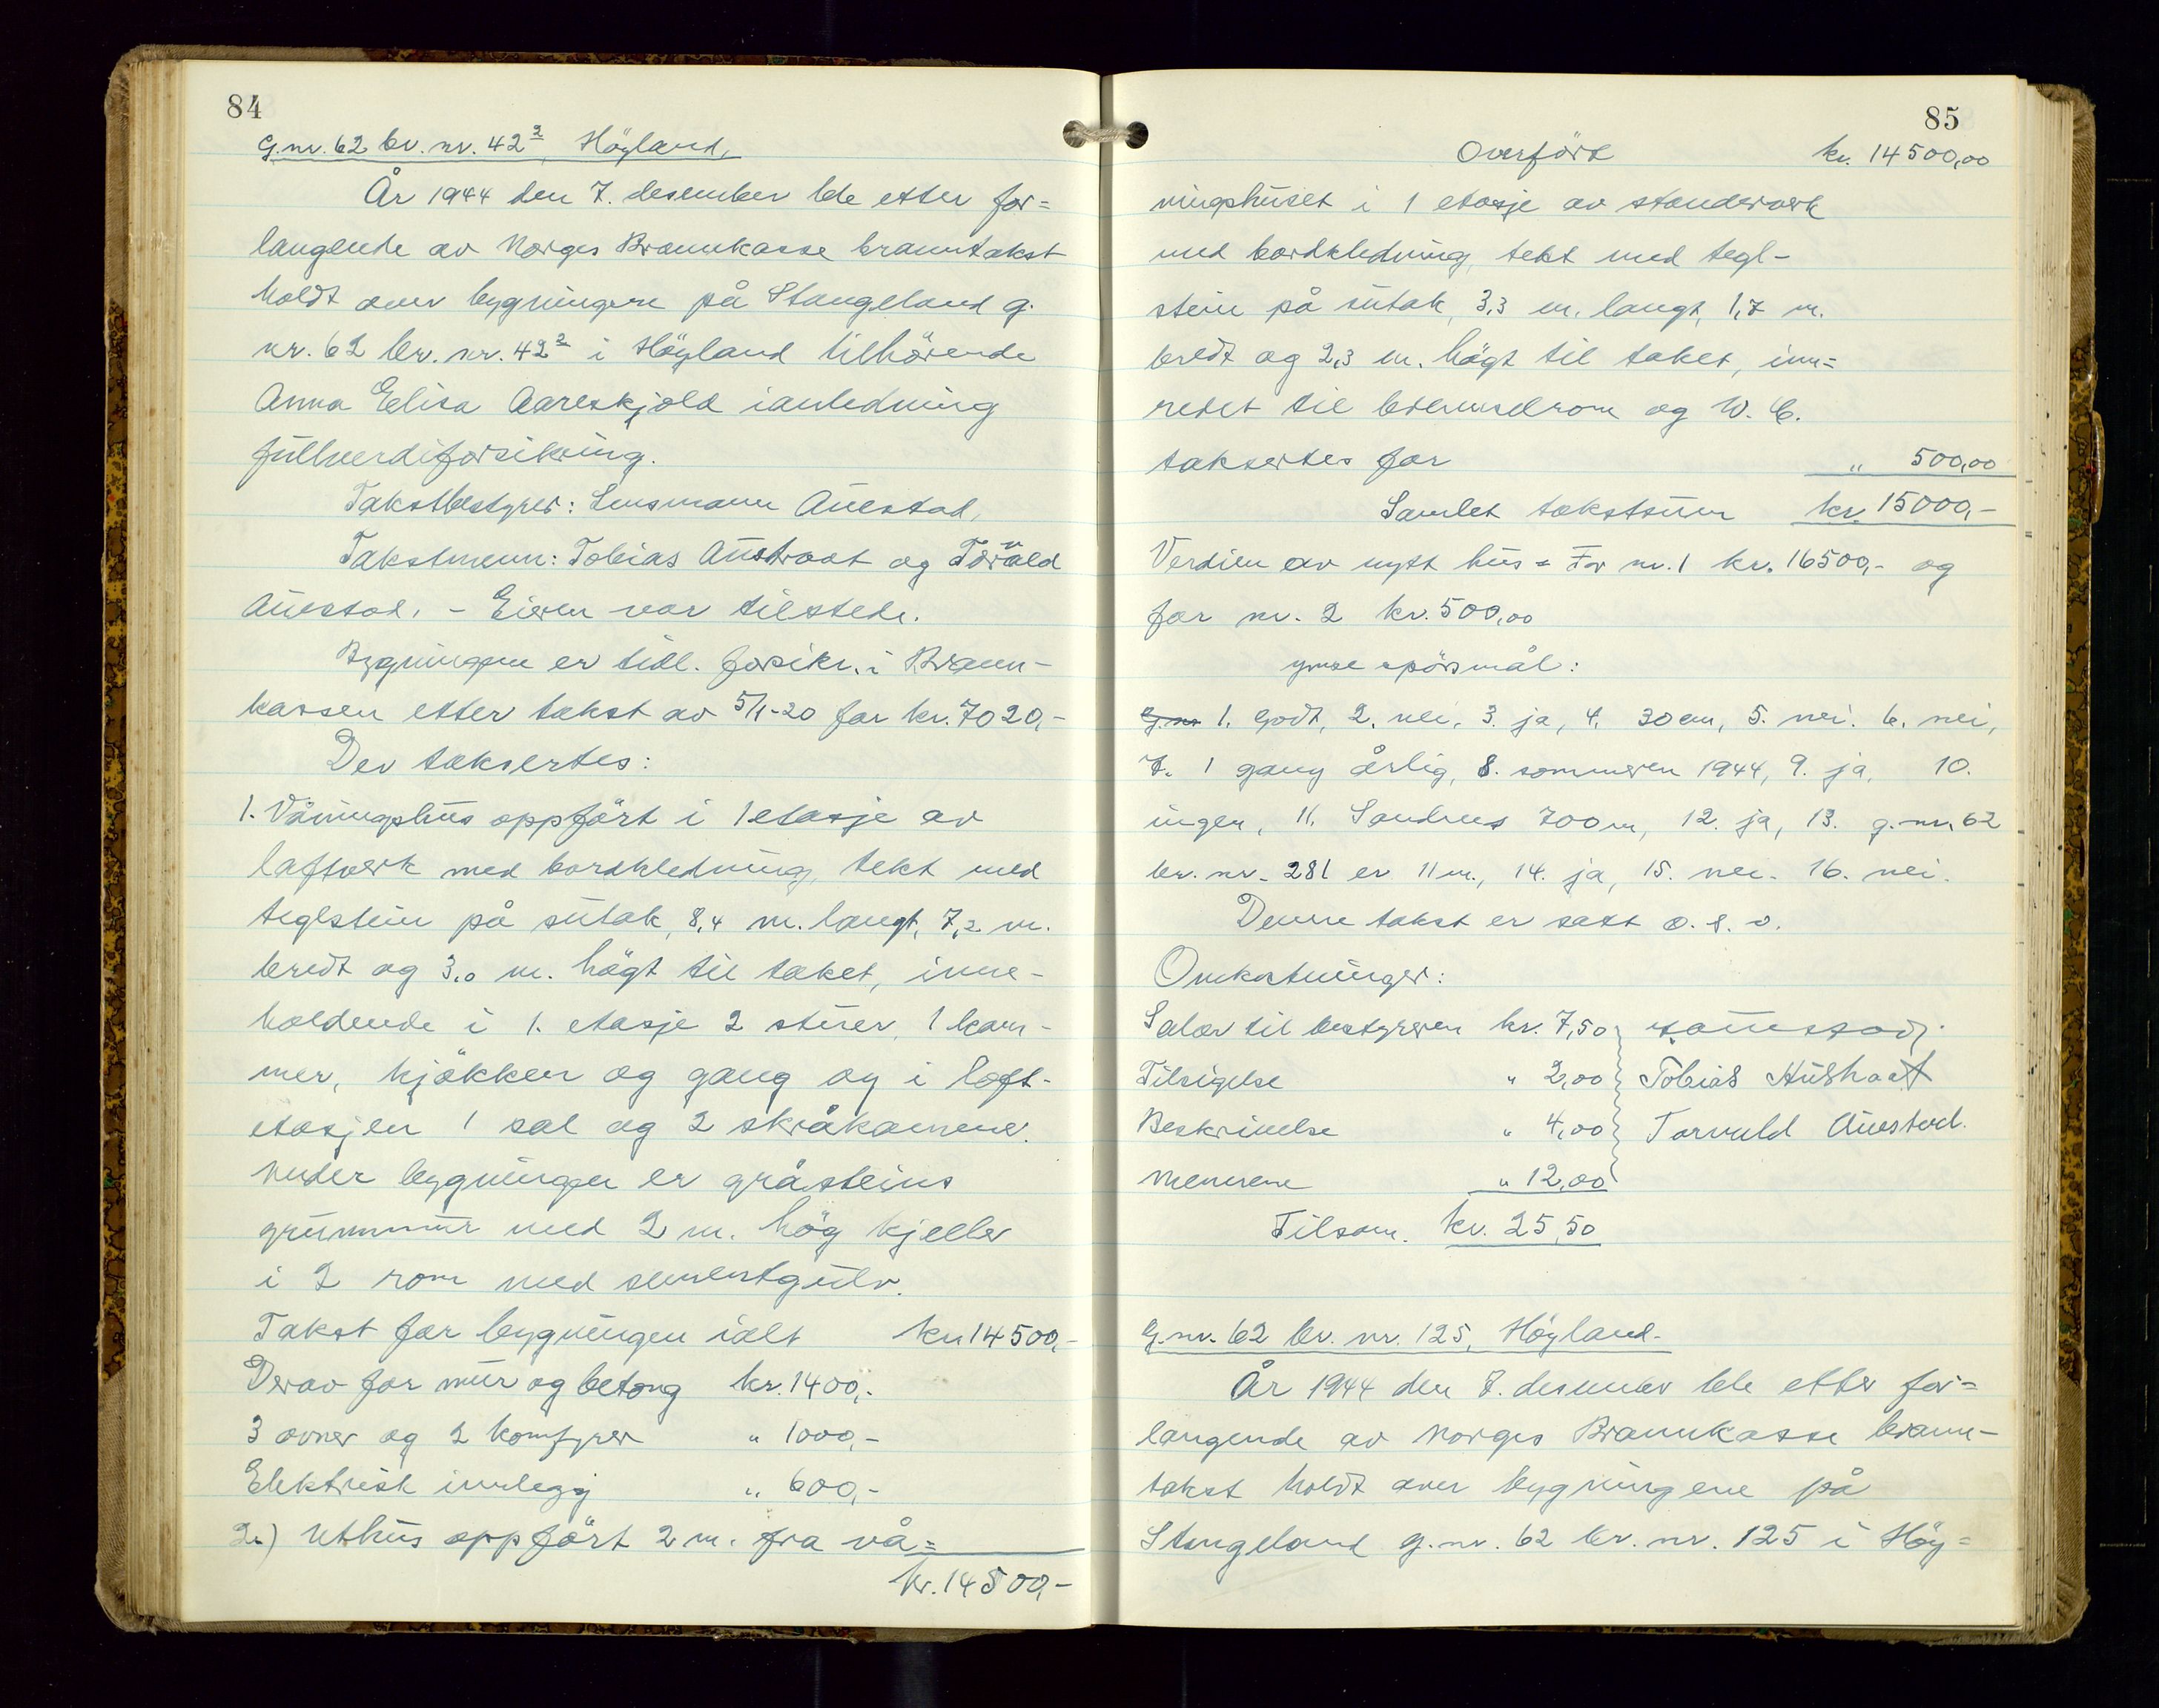 84
G.nr. 62 br. nr. 42², Høyland,
År 1944 den 7. desember ble etter for=
langende av Norges Brannkasse branntakst
holdt over bygningene på Stangeland g.
nr. 62 br. nr. 42² i Høyland tilhørende
Anna Elisa Aareskjold ianledning
fullverdiforsikring.
Takstbestyrer: Lensmann Auestad,
Takstmenn: Tobias Austraat og Torvald
Auestad. - Eieren var tilstede.
Bygningen er tidl. forsikr. i Brann-
kassen etter takst av 5/1-20 for kr. 7020,-
Der taksertes:
1. Våningshus oppført i 1 etasje av
laftverk med bordkledning, tekt med
teglstein på sutak, 8,4 m. langt, 7,2 m.
bredt og 3,0 m. høgt til taket, inne-
holdende i 1. etasje 2 stuer, 1 kam-
mer, kjøkken og gang og i loft-
etasjen 1 sal og 2 skråkamme.
Under bygningen er gråsteins
grunnmur med 2 m. høg kjeller
i 2 rom med sementgulv.
Takst for bygningen ialt kr. 14500,-
Derav for mur og betong kr. 1400,-
3 ovner og 2 komfyrer " 1000,-
Elektrisk innlegg " 600,-
2.) Uthus oppført 2 m. fra vå=
kr. 14500,-
85
Overført kr. 14500,00
ningshuset i 1 etasje av standerverk
med bordkledning, tekt med tegl-
stein på sutak, 3,3 m. langt, 1,7 m.
bredt og 2,3 m. høgt til taket, inn=
redet til brenselrom og W. C.
taksertes for " 500,00
Samlet takstsum kr. 15000,-
Verdien av nytt hus = For nr. 1 kr. 16500,- og
for nr. 2 kr. 500,00
ymse spørsmål:
G.nr 1. Godt, 2. nei, 3. ja, 4. 30 cm, 5. nei. 6. nei,
7. 1 gang årlig, 8. sommeren 1944, 9. ja, 10.
ingen, 11. Sandnes 700 m, 12. ja, 13. g.nr. 62
br. nr. 281 er 11 m., 14. ja, 15. nei. 16. nei.
Denne takst er satt o. s. v.
Omkostninger:
Salær til bestyreren kr. 7,50 Auestad.
Tilsigelse " 2,00 Tobias Austraat
Beskrivelse " 4,00 Torvald Auestad.
Mennene " 12,00
Tilsam. kr. 25,50
G.nr. 62 br. nr. 125, Høyland.
År 1944 den 7. desember ble etter for=
langende av Norges Brannkasse brann-
takst holdt over bygningene på
Stangeland g.nr. 62 br. nr. 125 i Høy=